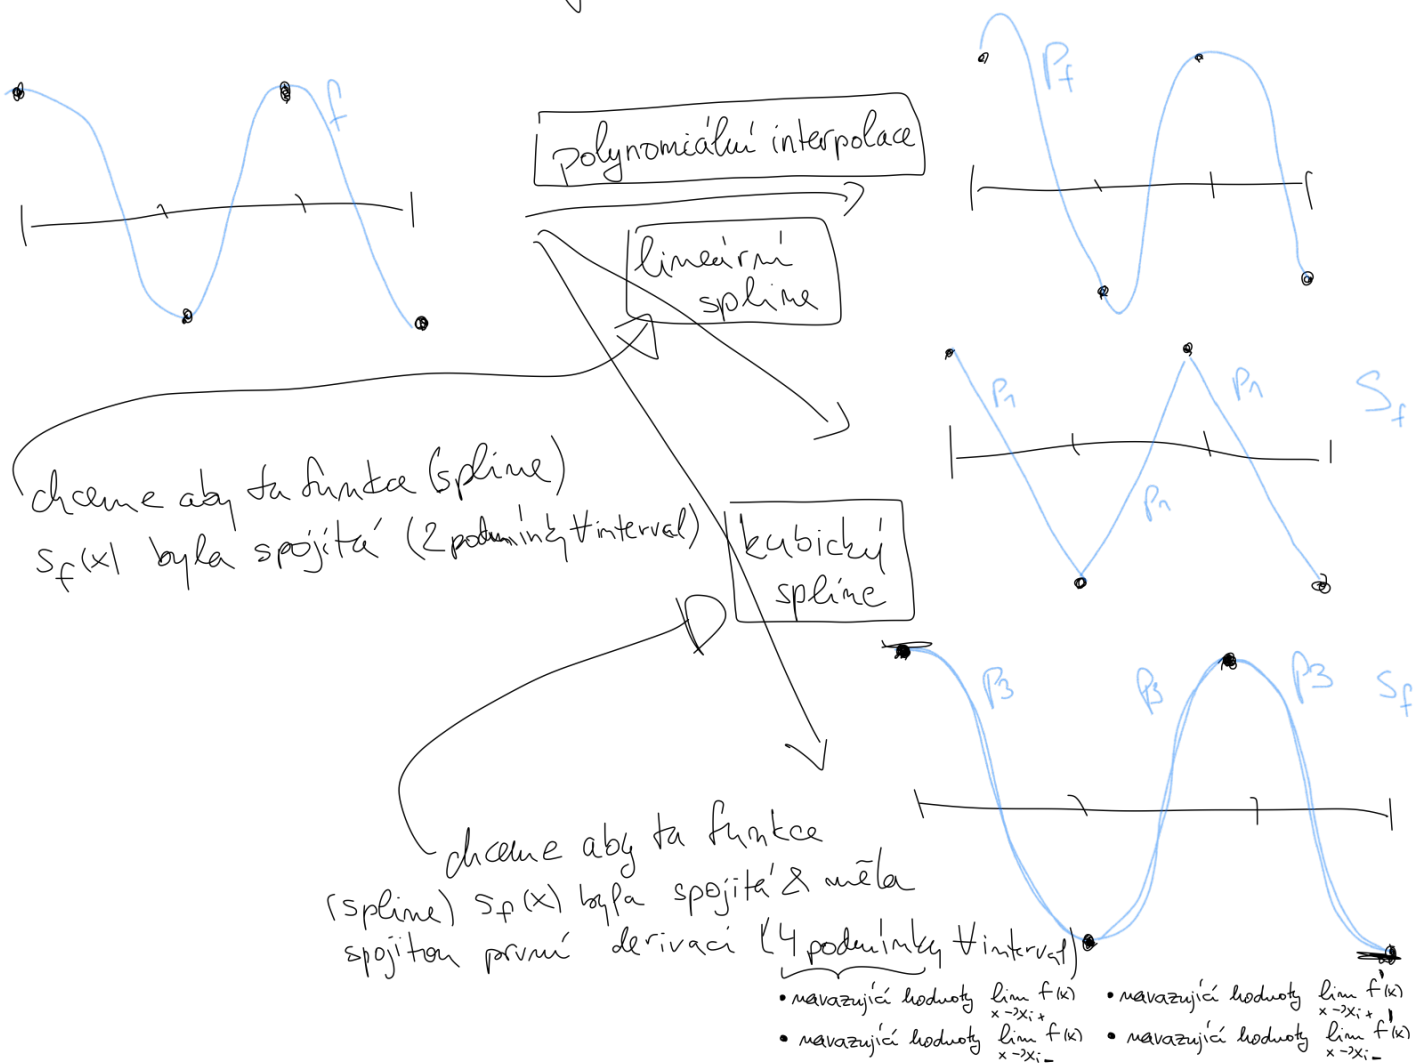 f
polynomiální interpolace
P_f
lineární
spline
P_1
P_1
P_1
S_f
chceme aby ta funkce (spline)
S_f(x) byla spojitá (2 podmínky ∀ interval)
kubický
spline
P3
P3
P3
S_f
chceme aby ta funkce
(spline) S_f(x) byla spojitá & měla
spojitou první derivaci (4 podmínky ∀ interval)
• navazující hodnoty lim f(x) x->x_i+
• navazující hodnoty lim f(x) x->x_i-
• navazující hodnoty lim f'(x) x->x_i+
• navazující hodnoty lim f'(x) x->x_i-